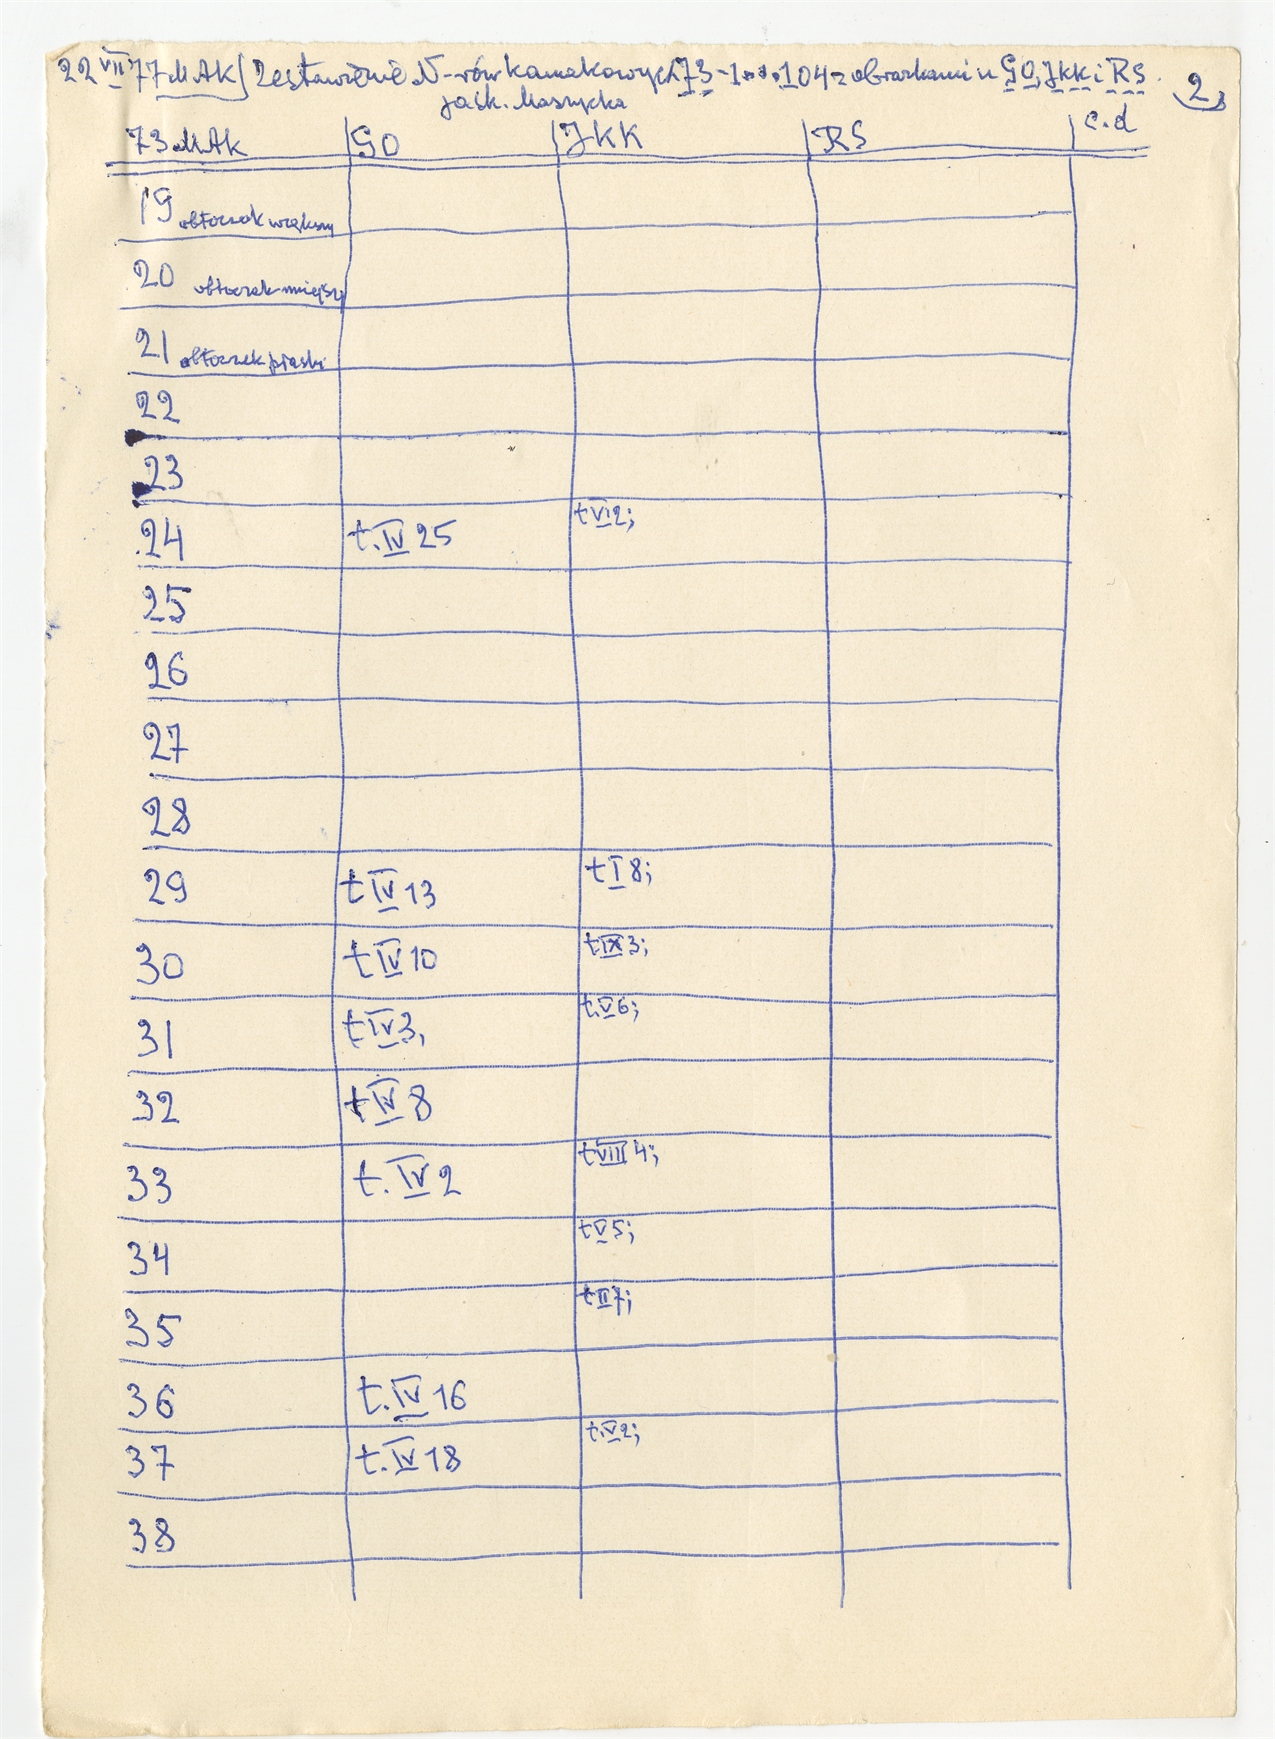 22 VII 77 MAK Zestawienie N-rów kamakowych 73-1...104 z obrazkami u GO, JKK i RS. 2
jask. Maszycka
73 MAK GO JKK RS c.d
19 obtoczak większy
20 obtoczak mniejszy
21 obtoczak płaski
22
23
24 t. IV 25 t VI 2;
25
26
27
28
29 t IV 13 t I 8;
30 t IV 10 t IX 3;
31 t IV 3, t. V 6;
32 t IV 8
33 t. IV 2 t VIII 4;
34 t V 5;
35 t II 7;
36 t. IV 16
37 t. IV 18 t. V 2;
38